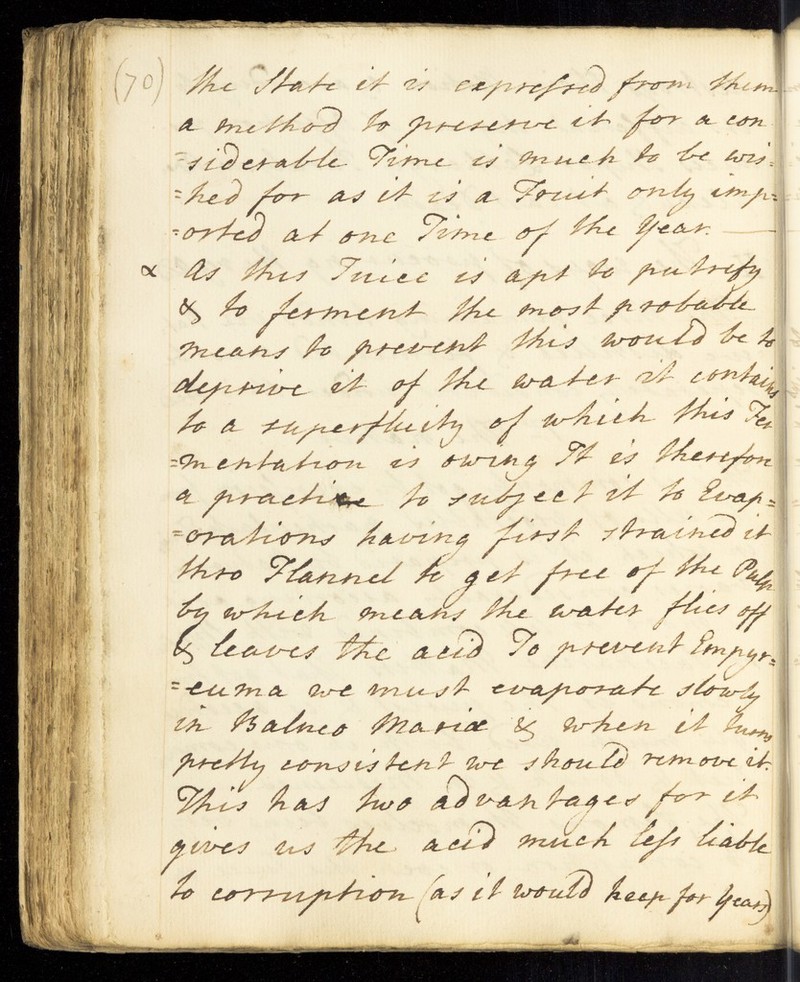 (70)
the State it is expressed from them
a method to preserve it for a con
=siderable Time is much to be wis=
=hed for as it is a Fruit only imp=
=orted at one Time of the Year. —
α As this Juice is apt to putrefy
& to ferment the most probable
means to prevent this would be to
deprive it of the water it contains
to a superfluity of which this Fer
=mentation is owing It is therefore
a practice to subject it to Evap=
=orations having first strained it
thro Flannel to get free of the Pulp
by which means the water flies off
& leaves the acid To prevent Empyr=
=euma we must evaporate slowly
in Balneo Mariæ & when it turns
pretty consistent we should remove it.
This has two advantages for it
gives us the acid much less liable
to corruption (as it would keep for Years)